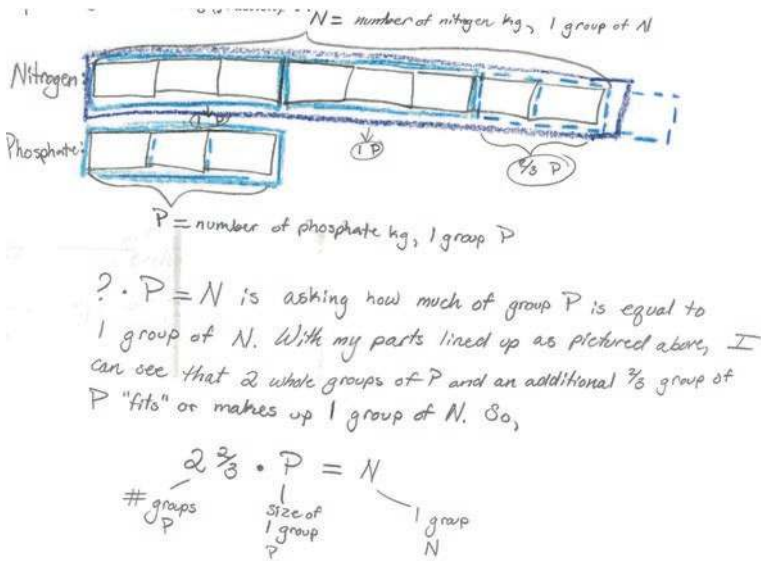 N = number of nitrogen kg, 1 group of N
Nitrogen:
1 P
Phosphate:
1 P
2/3 P
P = number of phosphate kg, 1 group P
? · P = N is asking how much of group P is equal to
1 group of N. With my parts lined up as pictured above, I
can see that 2 whole groups of P and an additional 2/3 group of
P "fits" or makes up 1 group of N. So,
2 2/3 · P = N
# groups P
size of 1 group P
1 group N